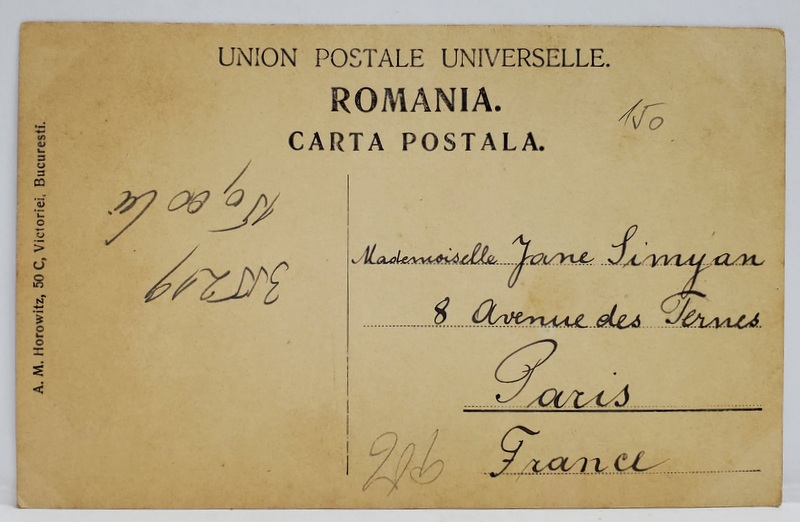 UNION POSTALE UNIVERSELLE.
ROMANIA.
CARTA POSTALA.
150
A. M. Horowitz, 50 C, Victoriei, Bucuresti.
150,00 lei
Mademoiselle Jane Simyan
8 Avenue des Ternes
Paris
France